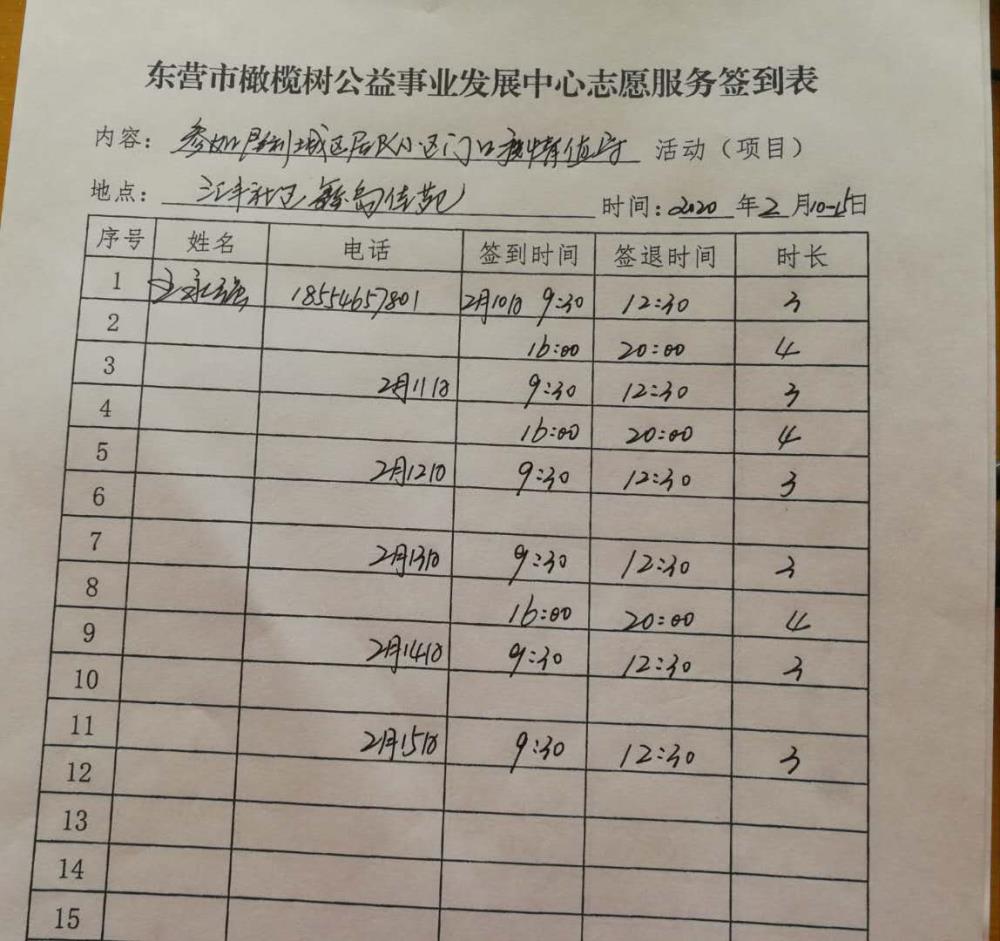 东营市橄榄树公益事业发展中心志愿服务签到表
内容： 参加胜利城区居民小区门口疫情值守 活动（项目）
地点： 汇丰社区 佳苑 时间：2020 年 2 月10-15日
序号 姓名 电话 签到时间 签退时间 时长
1 18554657801 2月10日 9:30 12:30 3
2 16:00 20:00 4
3 2月11日 9:30 12:30 3
4 16:00 20:00 4
5 2月12日 9:30 12:30 3
6
7 2月13日 9:30 12:30 3
8 16:00 20:00 4
9 2月14日 9:30 12:30 3
10
11 2月15日 9:30 12:30 3
12
13
14
15